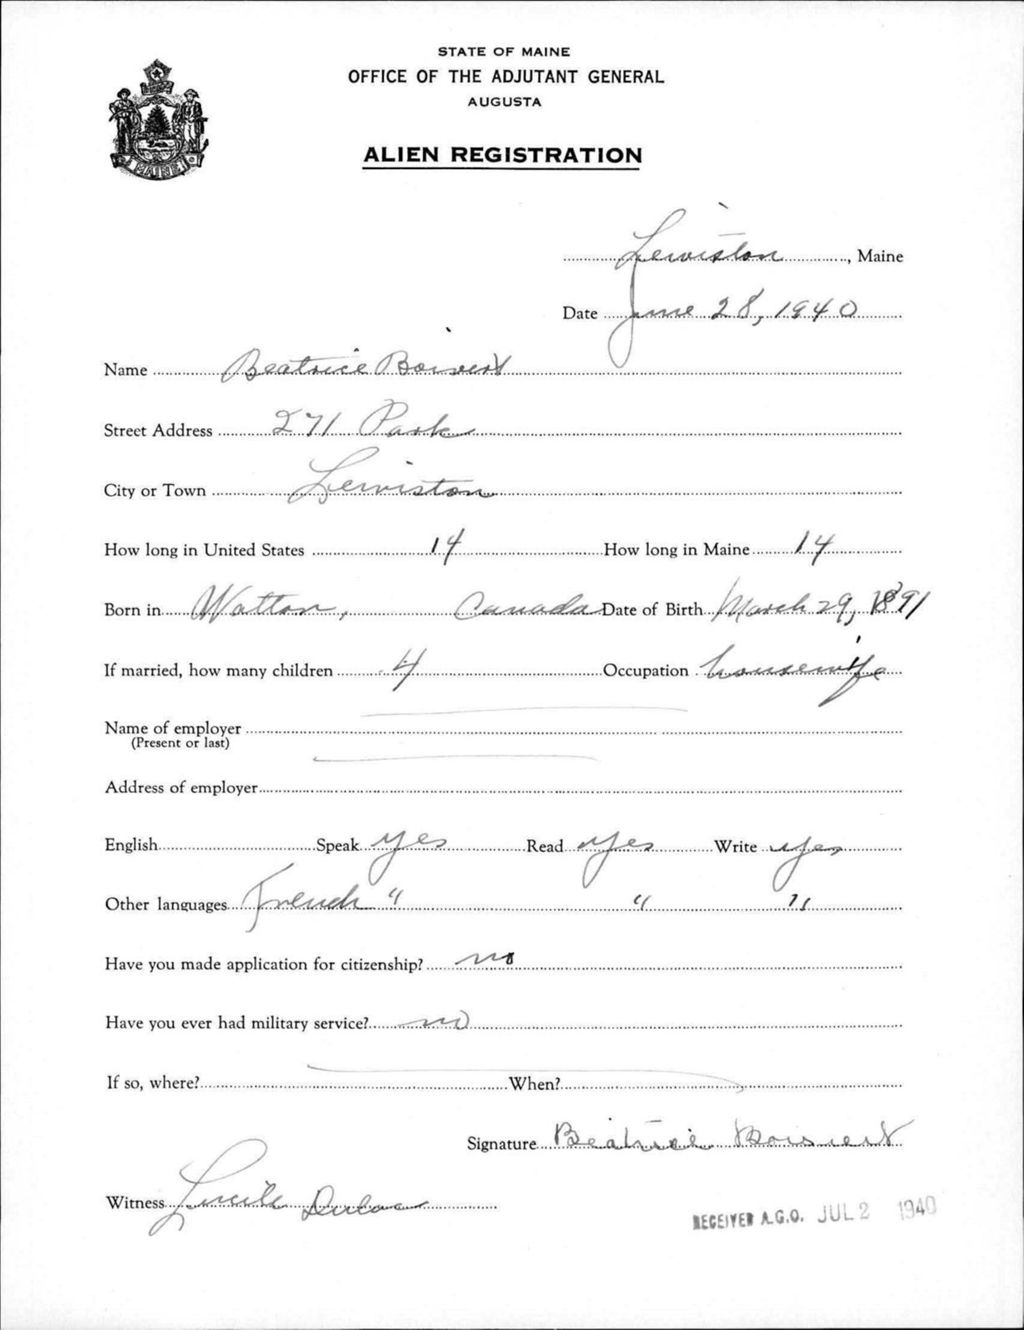 STATE OF MAINE
OFFICE OF THE ADJUTANT GENERAL
AUGUSTA
ALIEN REGISTRATION
MAINE
Lewiston, Maine
Date June 28, 1940
Name Beatrice Boisvert
Street Address 271 Park
City or Town Lewiston
How long in United States 14 How long in Maine 14
Born in Wotton, Canada Date of Birth March 29, 1891
If married, how many children 4 Occupation housewife
Name of employer
(Present or last)
Address of employer
English Speak yes Read yes Write yes
Other languages French " " "
Have you made application for citizenship? no
Have you ever had military service? no
If so, where? When?
Signature Beatrice Boisvert
Witness Lucile Dulac
RECEIVED A.G.O. JUL 2 1940